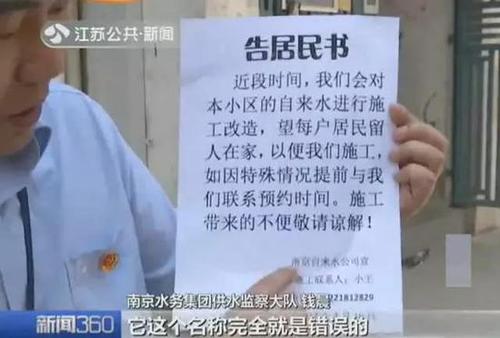 江苏公共·新闻
告居民书
近段时间，我们会对
本小区的自来水进行施
工改造，望每户居民留
人在家，以便我们施工，
如因特殊情况提前与我
们联系预约时间。施工
带来的不便敬请谅解！
南京自来水公司宣
施工联系人：小王
021812829
南京水务集团供水监察大队 钱晨
新闻360
它这个名称完全就是错误的